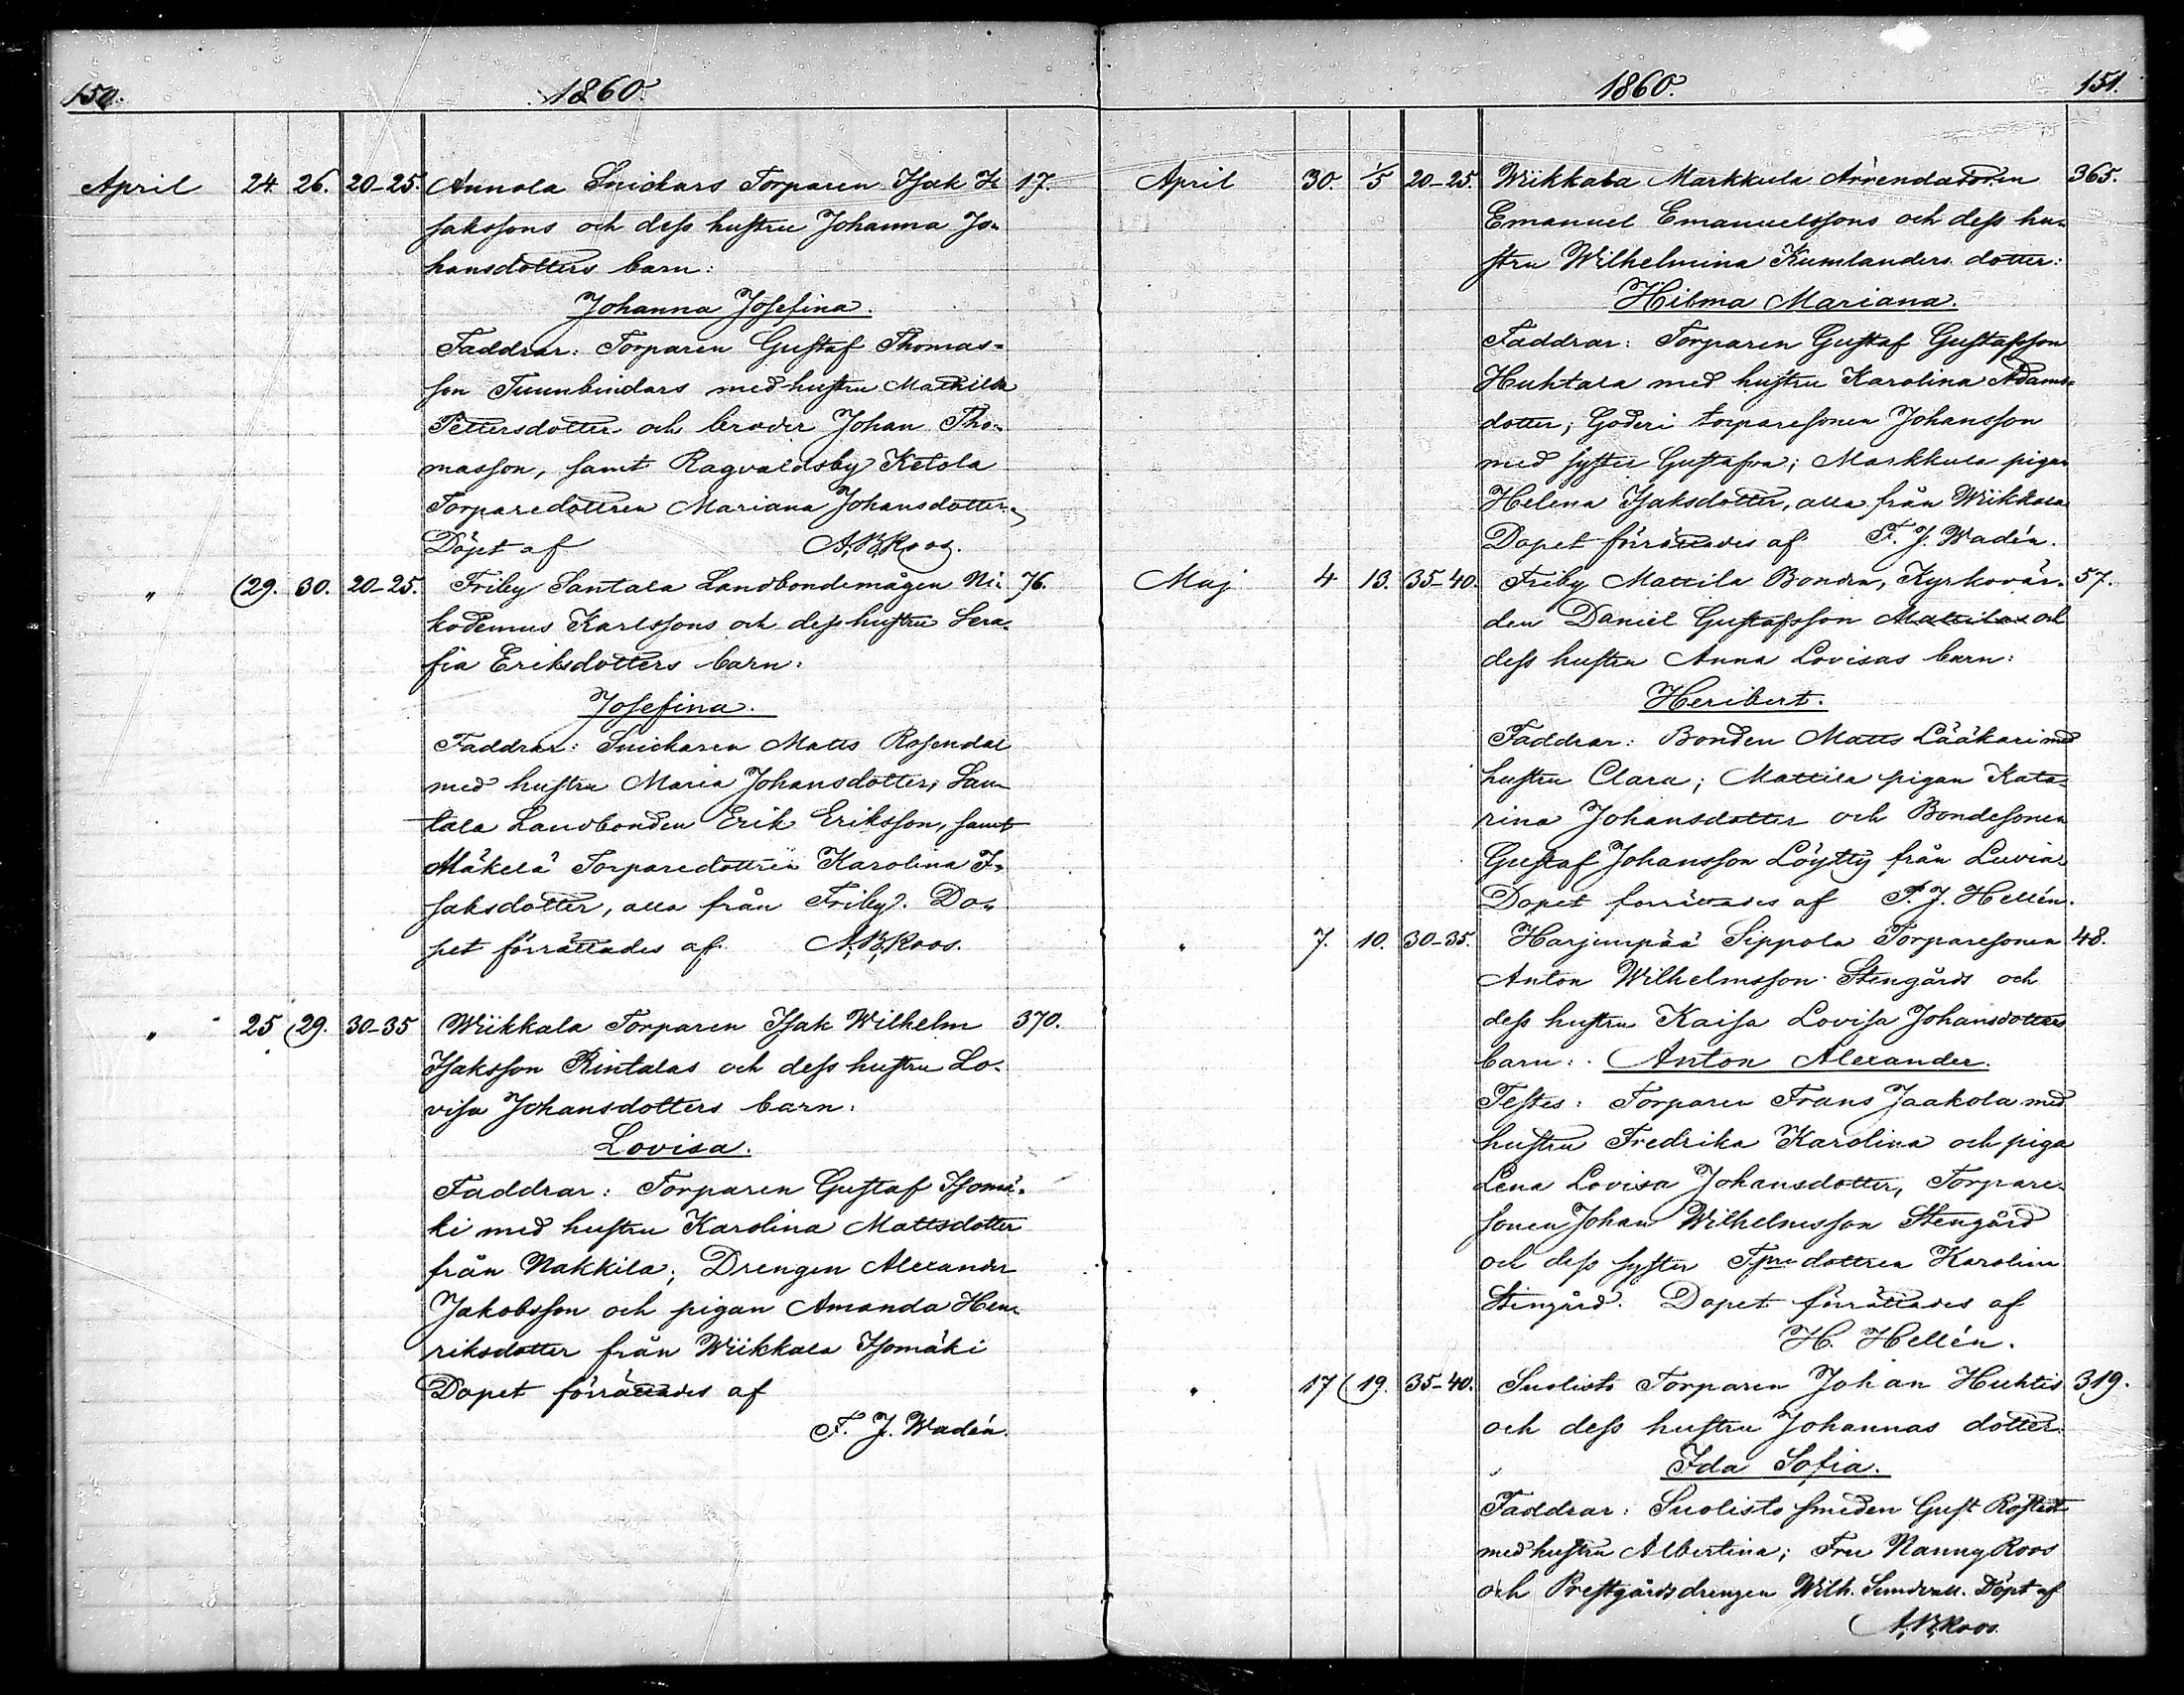 150. 1860.
April 24. 26. 20-25. Annola Snickars Torparen Isak I
sakssons och dess hustru Johanna Jo-
hansdotters barn: 17.
Johanna Josefina.
Faddrar: Torparen Gustaf Thomas-
son med hustru Mathilda
Pettersdotter och broder Johan Tho-
masson, samt Ragvaldsby Ketola
Torparedottren Mariana Johansdotter.
Döpt af A.B. Roos.
" 29. 30. 20-25. Friby Santala Landbondemågen Ni- 76.
kodemus Karlssons och dess hustru Sera-
fia Eriksdotters barn:
Josefina.
Faddrar: Snickaren Matts Rosendal
med hustru Maria Johansdotter; San-
tala Landbonden Erik Eriksson, samt
Mäkelä Torparedottren Karolina I-
saksdotter, alla från Friby. Do-
pet förrättades af A.B. Roos.
" 25 29. 30-35 Wiikkala Torparen Isak Wilhelm 370.
Isaksson Rintalas och dess hustru Lo-
visa Johansdotters barn:
Lovisa.
Faddrar: Torparen Gustaf Isomä-
ki med hustru Karolina Mattsdotter
från Nakkila; Drengen Alexander
Jakobsson och pigan Amanda Hen-
riksdotter från Wiikkala Isomäki
Dopet förrättades af
F. J. Wadén.
1860. 151.
April 30. 1/5 20-25. Wiikkala Markkula Arrendatoren 365.
Emanuel Emanuelssons och dess hu-
stru Wilhelmina Kumlanders dotter:
Hilma Mariana.
Faddrar: Torparen Gustaf Gustafsson
Huhtala med hustru Karolina Adams-
dotter; Goderi torparesonen Johansson
med syster Gustafva; Markkula pigan
Helena Isaksdotter, alla från Wiikkala
Dopet förrättades af F. J. Wadén.
Maj 4 13. 35-40. Friby Mattila Bonden, Kyrkovär- 57.
den Daniel Gustafsson Mattilas och
dess hustru Anna Lovisas barn:
Heribert.
Faddrar: Bonden Matts Lääkäri med
hustru Clara; Mattila pigan Kata-
rina Johansdotter och Bondesonen
Gustaf Johansson Löytty från Luvia
Dopet förrättades af F. J. Hellén.
" 7. 10. 30-35. Harjunpää Sippola Torparesonen 48.
Anton Wilhelmsson Stengårds och
dess hustru Kaisa Lovisa Johansdotters
barn: Anton Alexander.
Testes: Torparen Frans Jaakola med
hustru Fredrika Karolina och piga
Lena Lovisa Johansdotter, Torpare-
sonen Johan Wilhelmsson Stengård
och dess syster Tpre dottren Karolina
Stengård. Dopet förrättades af
H. Hellén.
" 17 19. 35-40. Suolisto Torparen Johan Huhtis 319.
och dess hustru Johannas dotter:
Ida Sofia.
Faddrar: Suolisto smeden Gust Rostedt
med hustru Albertina; Fru Nanny Roos
och Prestgårdsdrengen Wilh. Sundvall. Döpt af
A.B. Roos.